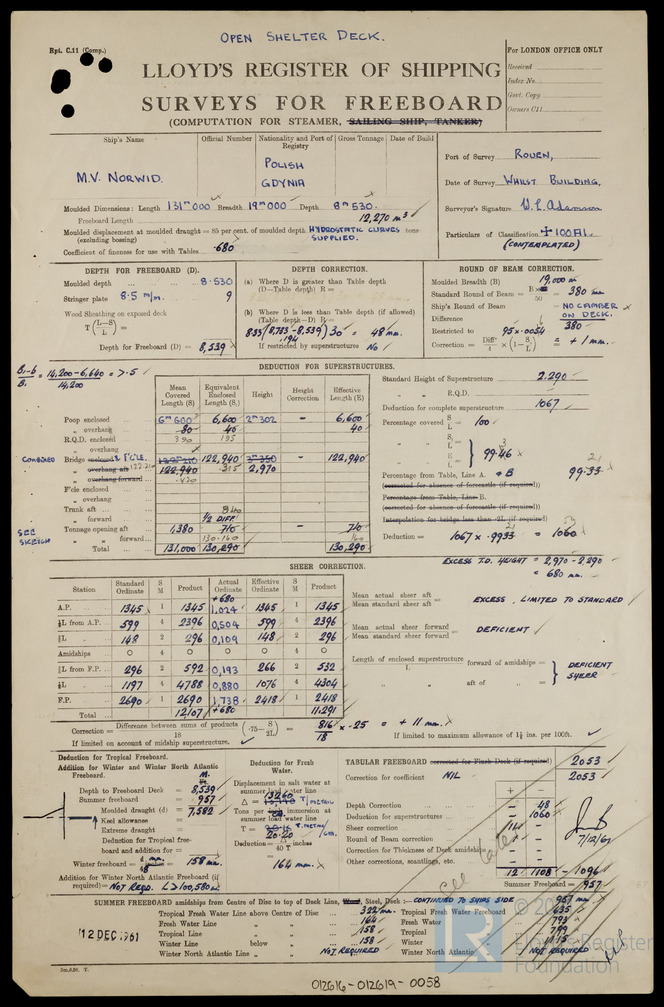 OPEN SHELTER DECK.
Rpt. C.11 (Comp.)
For LONDON OFFICE ONLY
Received
Index No.
Govt. Copy
Owners C11
LLOYD'S REGISTER OF SHIPPING
SURVEYS FOR FREEBOARD
(COMPUTATION FOR STEAMER, SAILING SHIP, TANKER)
Ship's Name
Official Number
Nationality and Port of Registry
Gross Tonnage
Date of Build
M.V. NORWID.
POLISH
GDYNIA
Port of Survey ROUEN,
Date of Survey WHILST BUILDING,
Surveyor's Signature W. L. Adamson
Particulars of Classification +100A1.
(CONTEMPLATED)
Moulded Dimensions: Length 131m000 Breadth 19m000 Depth 8m530.
Freeboard Length
12,270 m3
Moulded displacement at moulded draught = 85 per cent. of moulded depth HYDROSTATIC CURVES tons
(excluding bossing) SUPPLIED.
Coefficient of fineness for use with Tables .680
DEPTH FOR FREEBOARD (D).
Moulded depth 8.530
Stringer plate 8.5 m/m. 9
Wood Sheathing on exposed deck
T (L—S / L) =
Depth for Freeboard (D) = 8,539
DEPTH CORRECTION.
(a) Where D is greater than Table depth
(D—Table depth) R =
(b) Where D is less than Table depth (if allowed)
(Table depth—D) R =
(8,733 - 8,539) 30 = 48 mm.
.194
If restricted by superstructures No
ROUND OF BEAM CORRECTION.
Moulded Breadth (B) 19,000 m
Standard Round of Beam = B × / 50 = 380 mm
Ship's Round of Beam = NO CAMBER ON DECK.
Difference 380
Restricted to 95 × .0054
Correction = Diff / 4 × (1 - S / L) = + 1 mm.
B1-b / B1 = 14,200 - 6,640 / 14,200 = >.5
DEDUCTION FOR SUPERSTRUCTURES.
Mean Covered Length (S)
Equivalent Enclosed Length (S1)
Height
Height Correction
Effective Length (E)
Poop enclosed 6m600 6,600 2m302 - 6,600
" overhang 80 40 40
R.Q.D. enclosed 390 195
" overhang
COMBINED
Bridge enclosed & F'CLE. 122,940 122,940
" overhang aft 122,940 315 2,970
" overhang forward
F'cle enclosed
" overhang
Trunk aft
" forward ½ DIFF.
Tonnage opening aft 1,380 710 710
" " forward 130.160
SEE SKETCH
Total 131,000 130,290 130,290
Standard Height of Superstructure 2.290
" " R.Q.D.
Deduction for complete superstructure 1067
Percentage covered S / L = 100
S1 / L =
E / L = 99.46
Percentage from Table, Line A. + B 99.33
(corrected for absence of forecastle (if required))
Percentage from Table, Line B.
(corrected for absence of forecastle (if required))
Interpolation for bridge less than .2L (if required)
Deduction = 1067 × .9933 = 1060
EXCESS T.D. HEIGHT = 2,970 - 2,290
= 680 mm.
SHEER CORRECTION.
Station
Standard Ordinate
S M
Product
Actual Ordinate
Effective Ordinate
S M
Product
+680
A.P. 1345 1 1345 1,024 1345 1 1345
⅙L from A.P. 599 4 2396 0,504 599 4 2396
⅓L 148 2 296 0,109 148 2 296
Amidships 0 4 0 0 0 4 0
⅓L from F.P. 296 2 592 0,193 266 2 532
⅙L 1197 4 4788 0,880 1076 4 4304
F.P. 2690 1 2690 1,738 2418 1 2418
Total 12107 +680 11,291
Mean actual sheer aft / Mean standard sheer aft = EXCESS, LIMITED TO STANDARD
Mean actual sheer forward / Mean standard sheer forward = DEFICIENT
Length of enclosed superstructure / L forward of amidships =
" " aft of " =
DEFICIENT SHEER
Correction = Difference between sums of products / 18 (.75— S / 2L) = 816 / 18 × .25 = + 11 mm.
If limited on account of midship superstructure.
If limited to maximum allowance of 1½ ins. per 100ft.
Deduction for Tropical Freeboard.
Addition for Winter and Winter North Atlantic Freeboard.
M.
Depth to Freeboard Deck = 8,539
Summer freeboard = 957
Moulded draught (d) = 7,582
Keel allowance =
Extreme draught =
Deduction for Tropical freeboard and addition for =
Winter freeboard = d / 48 = 158 mm.
Addition for Winter North Atlantic Freeboard (if required) = NOT REQD. L > 100,580 m.
Deduction for Fresh Water.
Displacement in salt water at summer load water line
Δ = 13240 T/METRIC
Tons per immersion at summer load water line
T = 20.20 T. METRIC / CM.
Deduction = Δ / 40 T
= 164 mm.
TABULAR FREEBOARD corrected for Flush Deck (if required) 2053
Correction for coefficient NIL 2053
+ -
Depth Correction - 48
Deduction for superstructures - 1060
Sheer correction 11 -
Round of Beam correction 1 -
Correction for Thickness of Deck amidships - -
Other corrections, scantlings, etc. - -
12 1108 - 1096
Summer Freeboard = 957
7/12/61
See later
SUMMER FREEBOARD amidships from Centre of Disc to top of Deck Line, Wood, Steel, Deck:— CONTINUED TO SHIPS SIDE 957 mm.
Tropical Fresh Water Line above Centre of Disc 322 mm.
Fresh Water Line " " 164
Tropical Line " " 158
Winter Line below " 158
Winter North Atlantic Line " " NOT REQUIRED
Tropical Fresh Water Freeboard 635
Fresh Water " 793
Tropical " 799
Winter " 1115
Winter North Atlantic " NOT REQUIRED
12 DEC 1961
Lloyd's Register
Foundation
012616-012619-0058